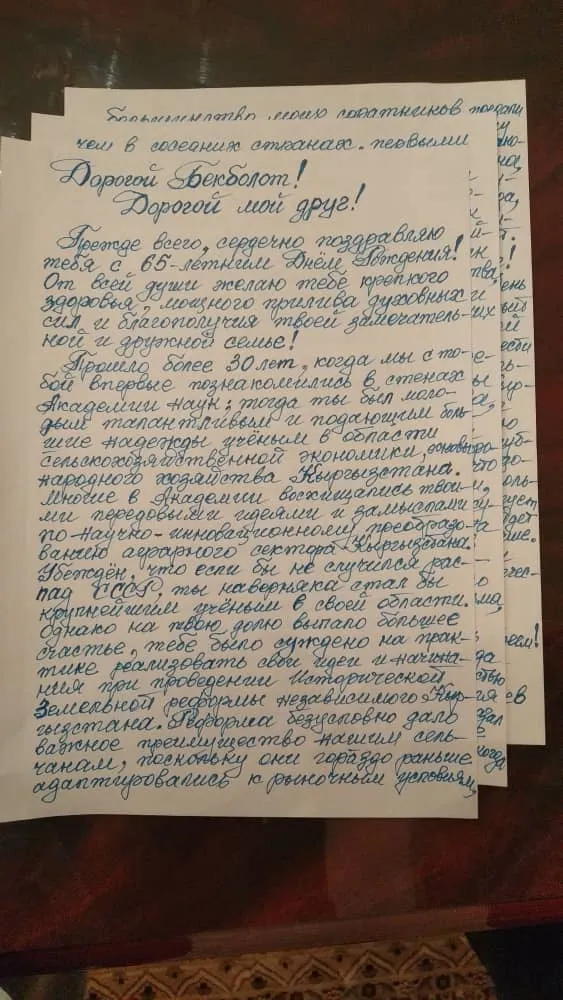 большинство моих соратников
чем в соседних странах. первыми
Дорогой Бекболот!
Дорогой мой друг!
Прежде всего, сердечно поздравляю
тебя с 65-летним Днём Рождения!
От всей души желаю тебе крепкого
здоровья, мощного прилива духовных
сил и благополучия твоей замечатель-
ной и дружной семье!
Прошло более 30 лет, когда мы с то-
бой впервые познакомились в стенах
Академии наук; тогда ты был моло-
дым талантливым и подающим боль
шие надежды учёным в области
сельскохозяйственной экономики, основы
народного хозяйства Кыргызстана.
Многие в Академии восхищались твои-
ми передовыми идеями и замыслами
по научно-инновационному преобразо-
ванию аграрного сектора Кыргызстана.
Убеждён, что если бы не случился рас-
пад СССР, ты наверняка стал бы
крупнейшим учёным в своей области.
Однако на твою долю выпало большее
счастье, тебе было суждено на прак-
тике реализовать свои идеи и начина-
ния при проведении Исторической
Земельной реформы независимого Кыр-
гызстана. Реформа безусловно дало
важное преимущество нашим сель-
чанам, поскольку они гораздо раньше
адаптировались к рыночным условиям,